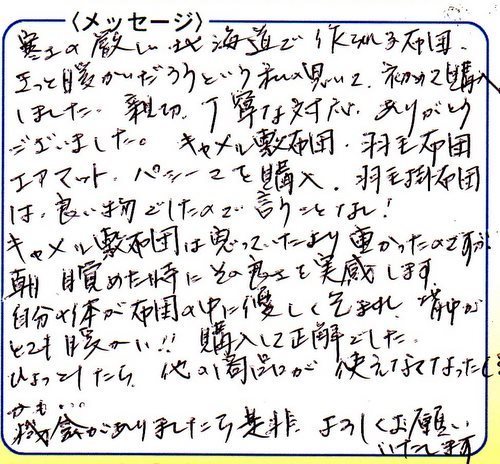 〈メッセージ〉
寒さの厳しい北海道で作られる布団、
きっと暖かいだろうという私の思いで、初めて購入
しました。親切、丁寧な対応、ありがとう
ございました。キャメル敷布団、羽毛布団
エアマット、パシーマを購入、羽毛掛布団
は、良い物でしたので言うことなし!
キャメル敷布団は思っていたより重かったのですが、
朝目覚めた時にその良さを実感します
自分の体が布団の中に優しく包まれ、背中が
とても暖かい!!購入して正解でした。
ひょっとしたら、他の商品が使えなくなってしまう
かも...
機会がありましたら是非、よろしくお願い
いたします